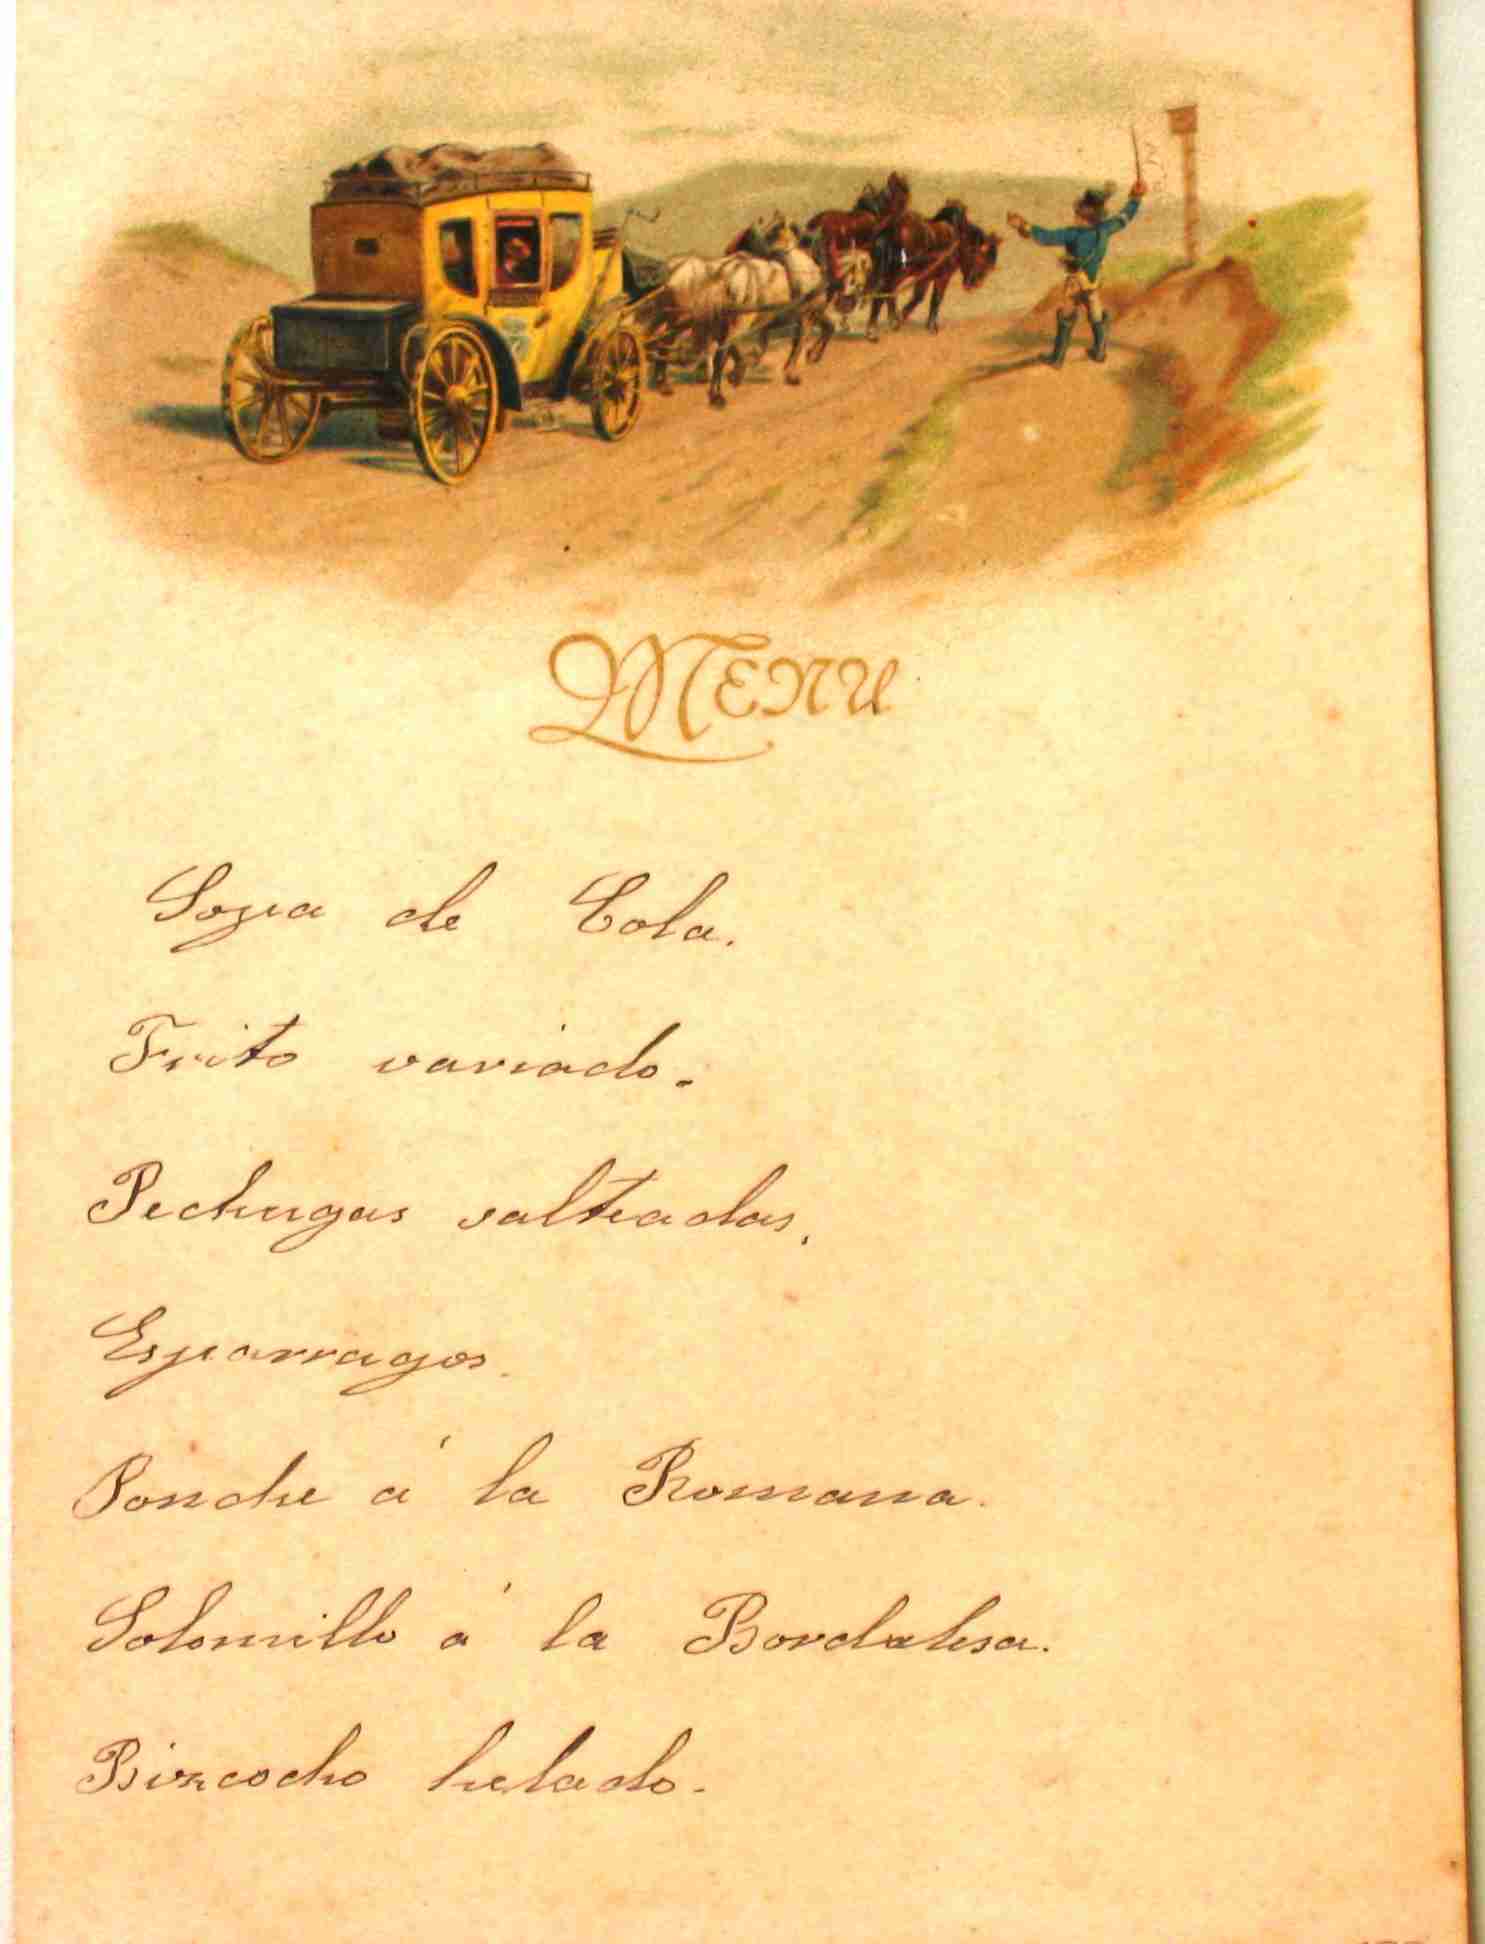 MENU
Sopa de Cola.
Frito variado.
Pechugas salteadas.
Esparragos.
Ponche á la Romana.
Solomillo á la Bordalesa.
Bizcocho helado.